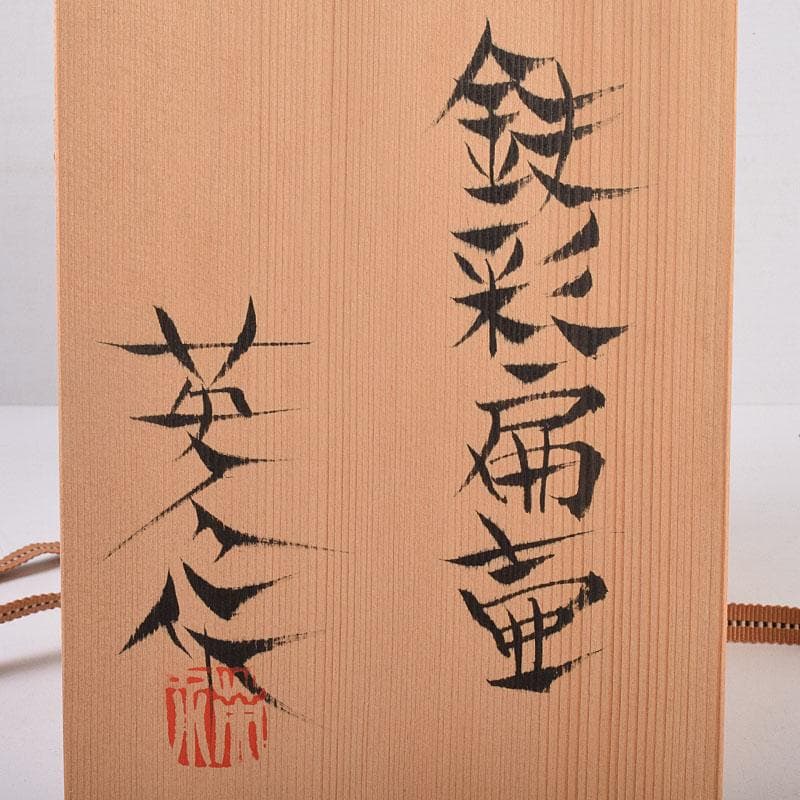 鉄彩扁壷
英人作